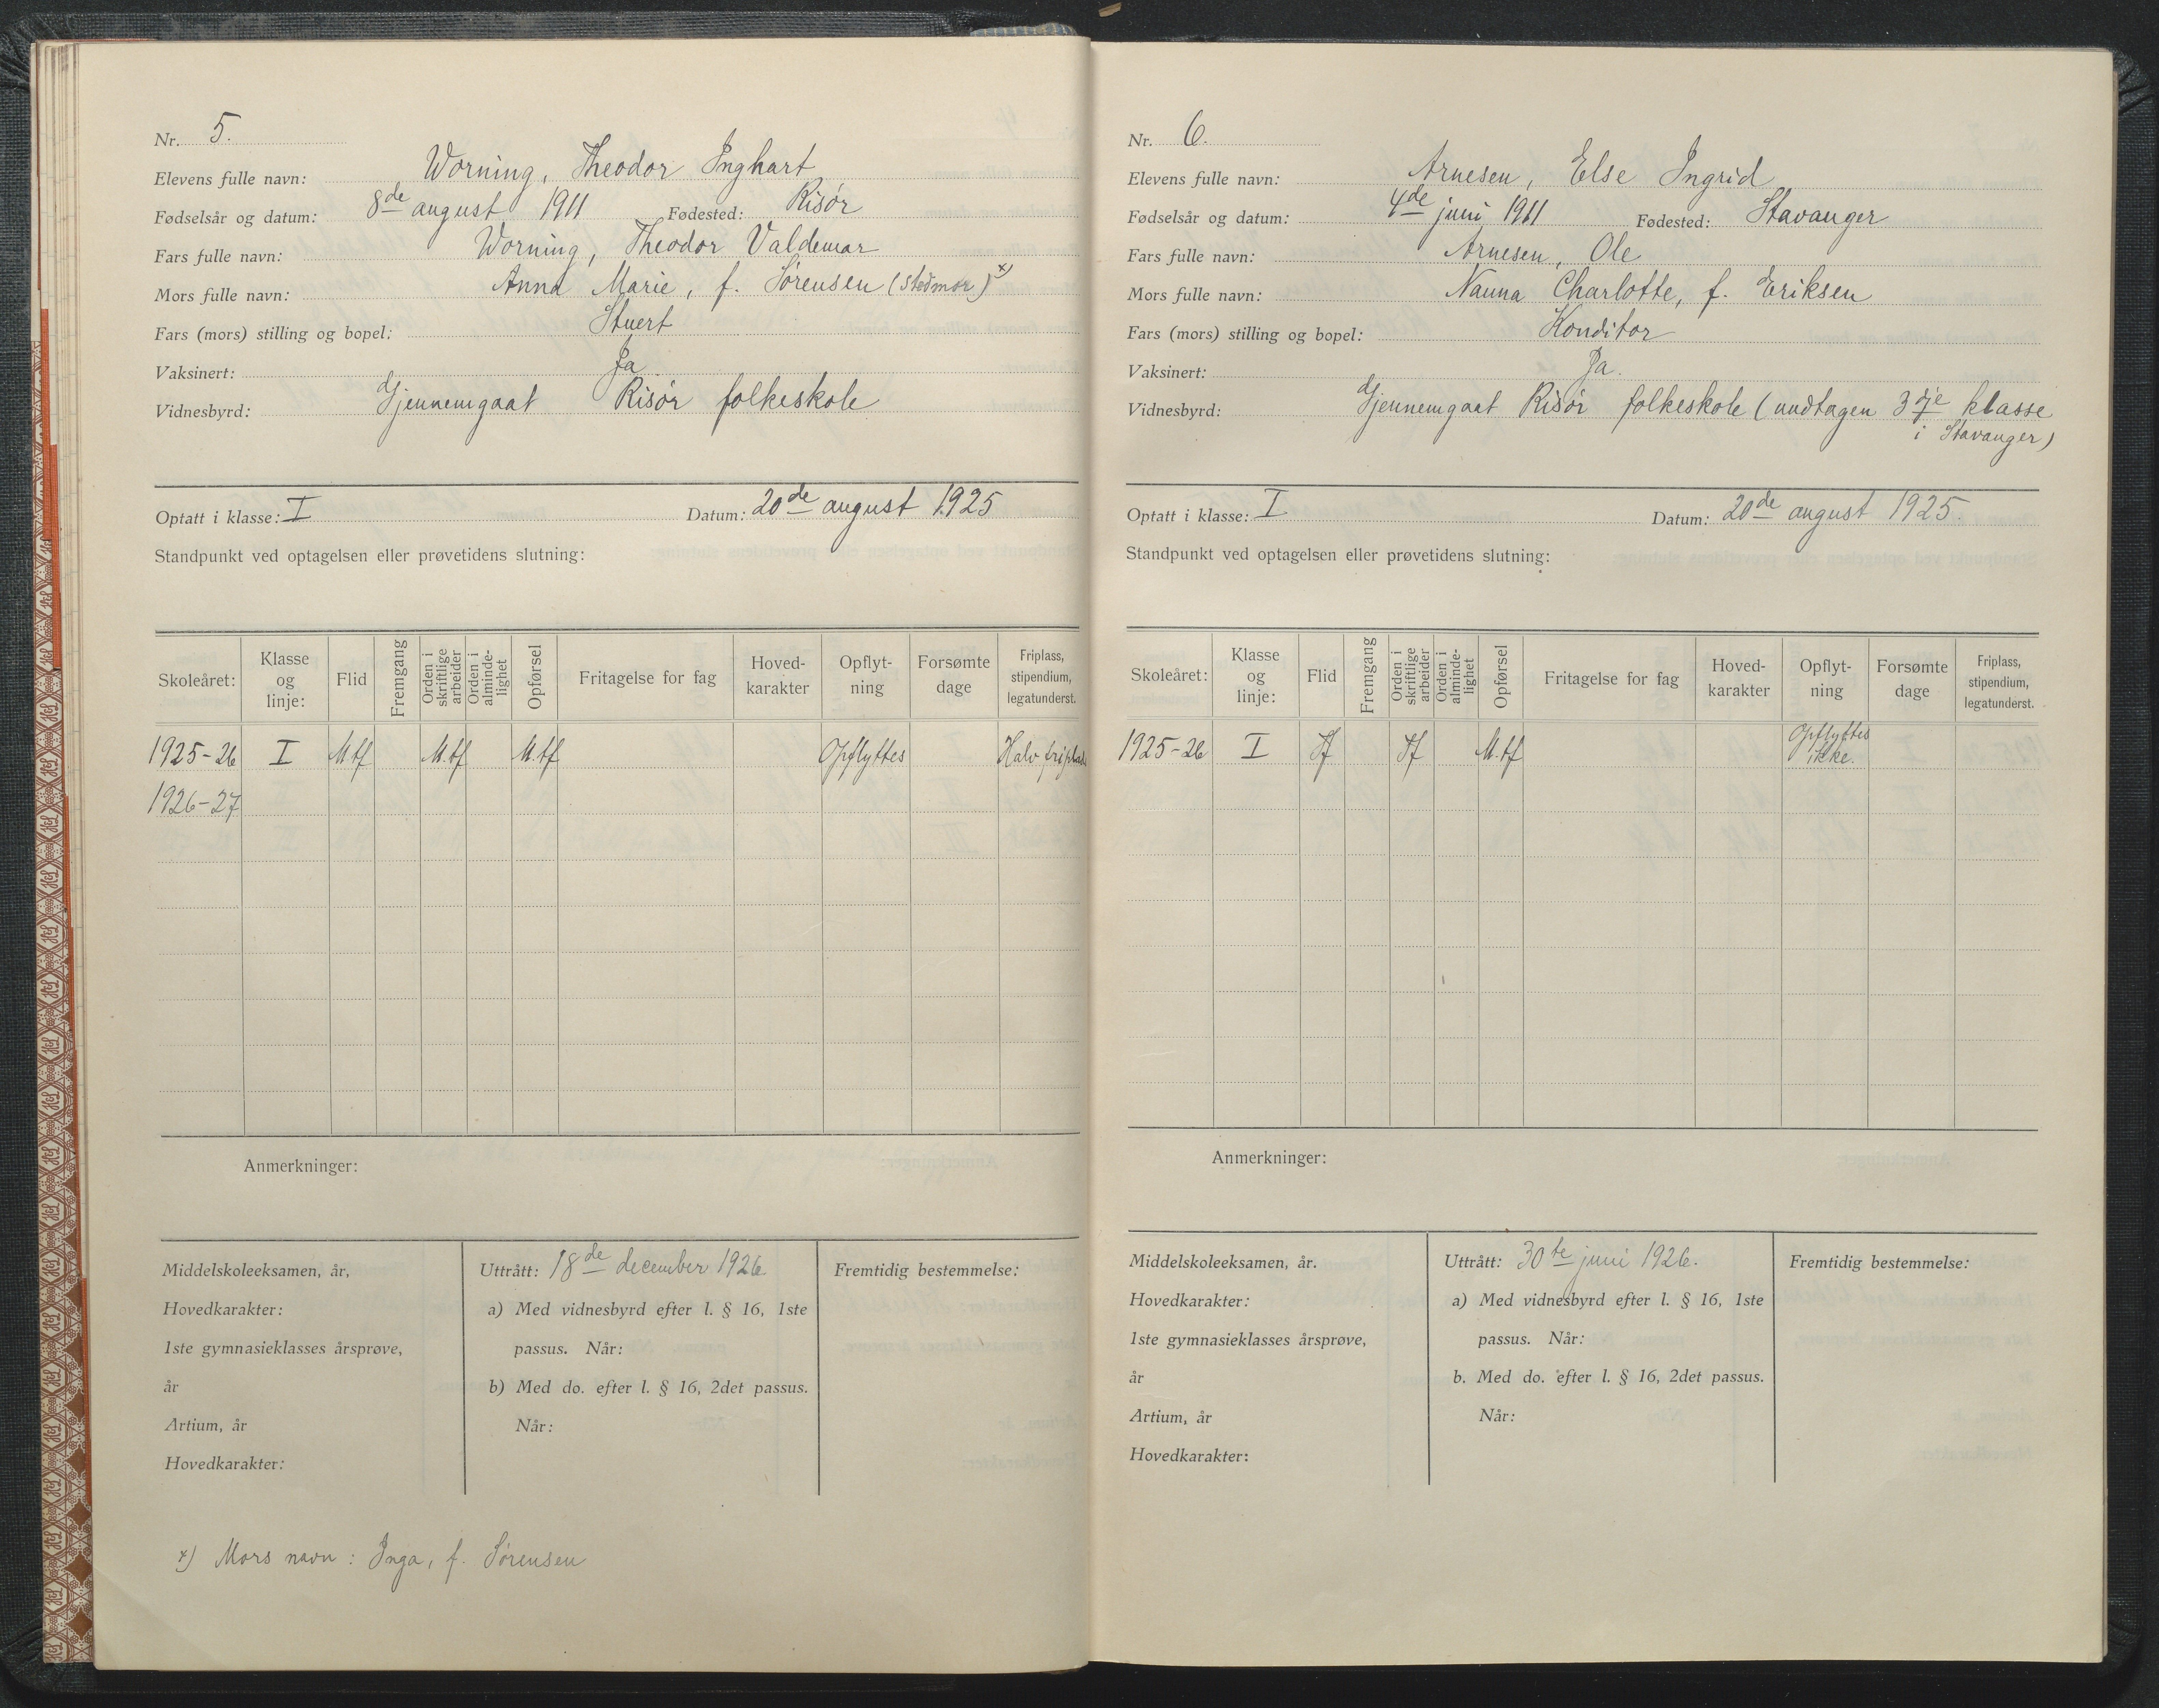 Nr. 5.
Elevens fulle navn: Worning, Theodor Inghart
Fødselsår og datum: 8de august 1911 Fødested: Risør
Fars fulle navn: Worning, Theodor Valdemar
Mors fulle navn: Anna Marie, f. Sørensen (stedmor) x)
Fars (mors) stilling og bopel: Stuert
Vaksinert: Ja
Vidnesbyrd: Gjennemgaat Risør folkeskole
Optatt i klasse: I Datum: 20de august 1925
Standpunkt ved optagelsen eller prøvetidens slutning:
Skoleåret: Klasse og linje: Flid Fremgang Orden i skriftlige arbeider Orden i almindelighet Opførsel Fritagelse for fag Hovedkarakter Opflytning Forsømte dage Friplass, stipendium, legatunderst.
1925-26 I M.tf M.tf M.tf Opflyttes Halv friplads
1926-27
Anmerkninger:
Middelskoleeksamen, år,
Hovedkarakter:
1ste gymnasieklasses årsprøve,
år
Artium, år
Hovedkarakter:
Uttrått: 18de december 1926
a) Med vidnesbyrd efter l. § 16, 1ste
passus. Når:
b) Med do. efter l. § 16, 2det passus.
Når:
Fremtidig bestemmelse:
x) Mors navn: Inga, f. Sørensen
Nr. 6.
Elevens fulle navn: Arnesen, Else Ingrid
Fødselsår og datum: 4de juni 1911 Fødested: Stavanger
Fars fulle navn: Arnesen, Ole
Mors fulle navn: Nanna Charlotte, f. Eriksen
Fars (mors) stilling og bopel: Konditor
Vaksinert: Ja.
Vidnesbyrd: Gjennemgaat Risør folkeskole (undtagen 3dje klasse
i Stavanger)
Optatt i klasse: I Datum: 20de august 1925.
Standpunkt ved optagelsen eller prøvetidens slutning:
Skoleåret: Klasse og linje: Flid Fremgang Orden i skriftlige arbeider Orden i almindelighet Opførsel Fritagelse for fag Hovedkarakter Opflytning Forsømte dage Friplass, stipendium, legatunderst.
1925-26 I Tf Tf M.tf Opflyttes ikke.
Anmerkninger:
Middelskoleeksamen, år.
Hovedkarakter:
1ste gymnasieklasses årsprøve,
år
Artium, år
Hovedkarakter:
Uttrått: 30te juni 1926.
a) Med vidnesbyrd efter l. § 16, 1ste
passus. Når:
b. Med do. efter l. § 16, 2det passus.
Når:
Fremtidig bestemmelse: